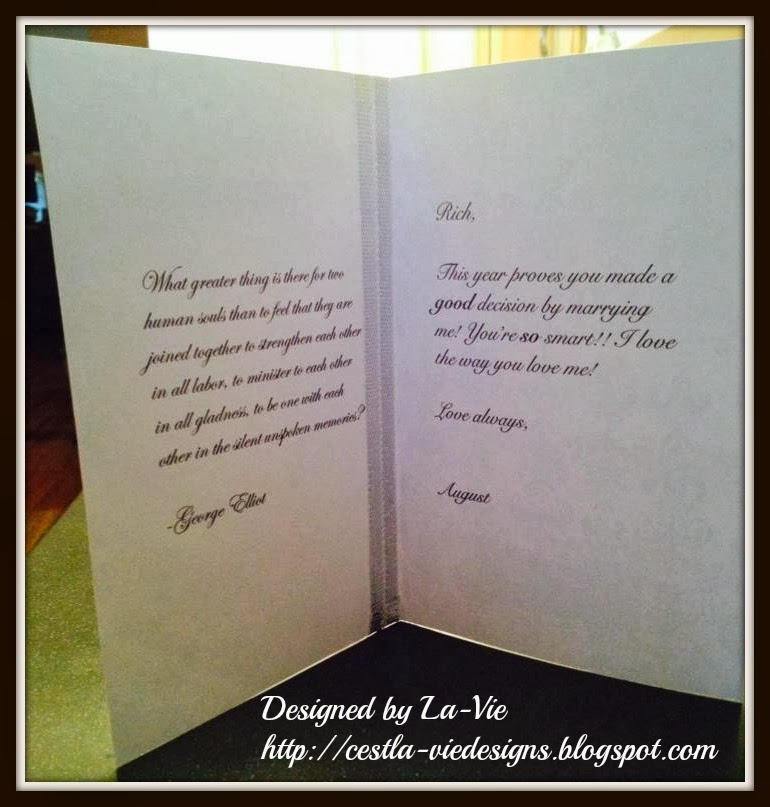 What greater thing is there for two
human souls than to feel that they are
joined together to strengthen each other
in all labor, to minister to each other
in all gladness, to be one with each
other in the silent unspoken memories?
-George Elliot
Rich,
This year proves you made a
good decision by marrying
me! You're so smart!! I love
the way you love me!
Love always,
August
Designed by La-Vie
http://cestla-viedesigns.blogspot.com